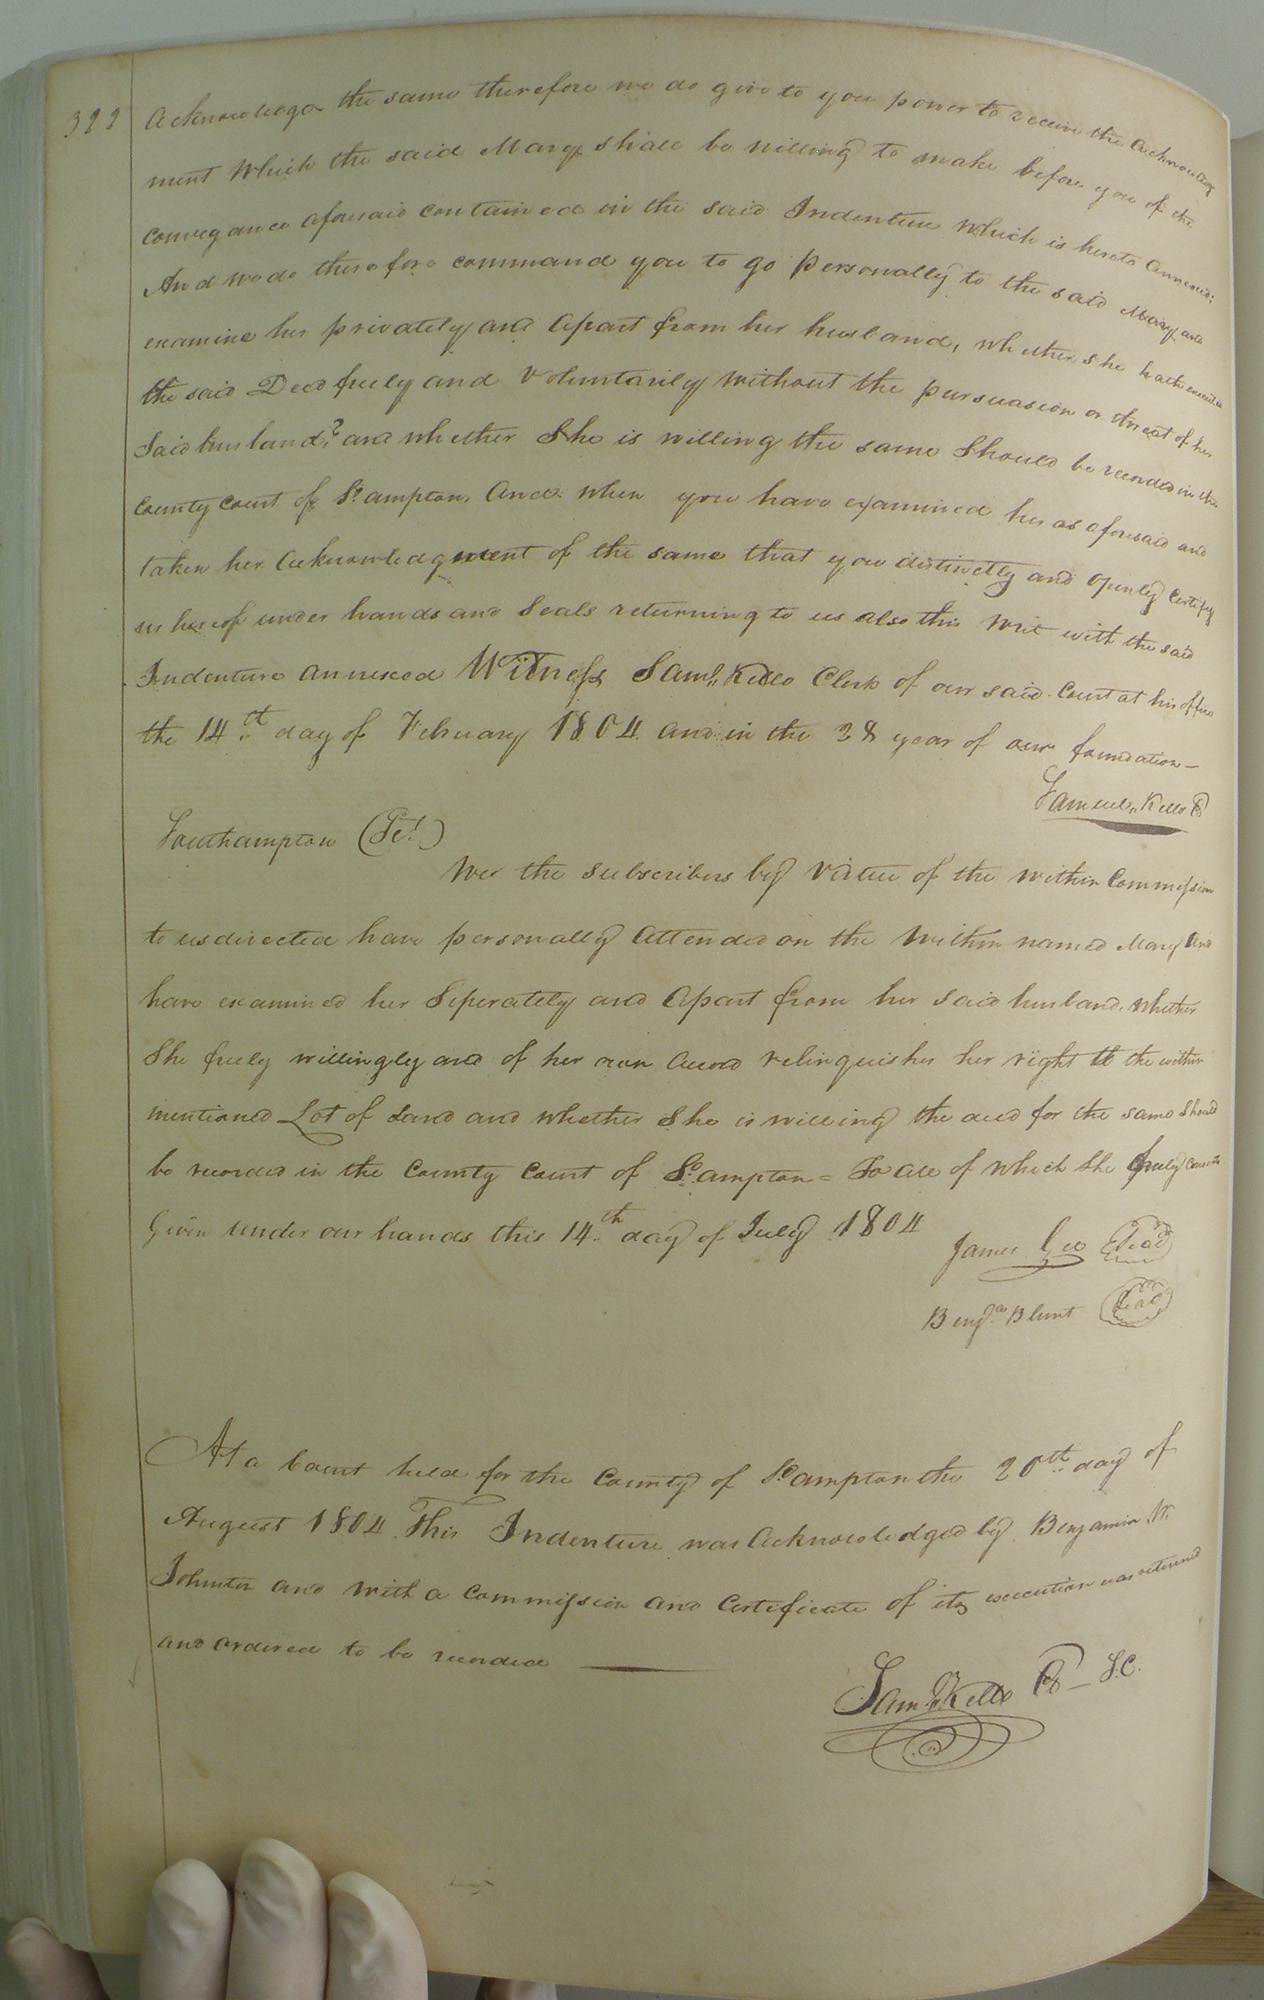 322
acknowledge the same therefore we do give to you power to receive the acknowledg
ment which the said Mary shall be willing to make before you of the
conveyance aforesaid contained in the said Indenture which is hereto annexed:
And we do therefore command you to go personally to the said Mary and
examine her privately and apart from her husband, whether she hath executed
the said Deed freely and Voluntarily without the persuasion or threat of her
said husband? and whether She is willing the same Should be recorded in the
County Court of So.ampton. And when you have examined her as aforesaid and
taken her acknowledgment of the same that you distinctly and openly Certify
us hereof under hands and Seals returning to us also this Writ with the said
Indenture annexed Witness Saml. Kello Clerk of our said Court at his office
the 14th day of February 1804 and in the 28 year of our foundation —
Samuel Kello
Southampton (Sc!)
Wee the subscribers by Virtue of the within Commission
to us directed have personally Attended on the within named Mary and
have examined her Seperately and Apart from her said husband, whether
She freely willingly and of her own accord relinquishes her right to the within
mentioned Lot of Land and whether She is willing the deed for the same Should
be recorded in the County Court of So.ampton = To all of which She freely consents
Given under our hands this 14th day of July 1804
James Gee Seal
Benja. Blunt Seal
At a Court held for the County of So.ampton the 20th day of
August 1804 This Indenture was Acknowledged by Benjamin W.
Johnston and with a Commission and Certificate of its execution was returned
and ordered to be recorded —
Saml. Kello